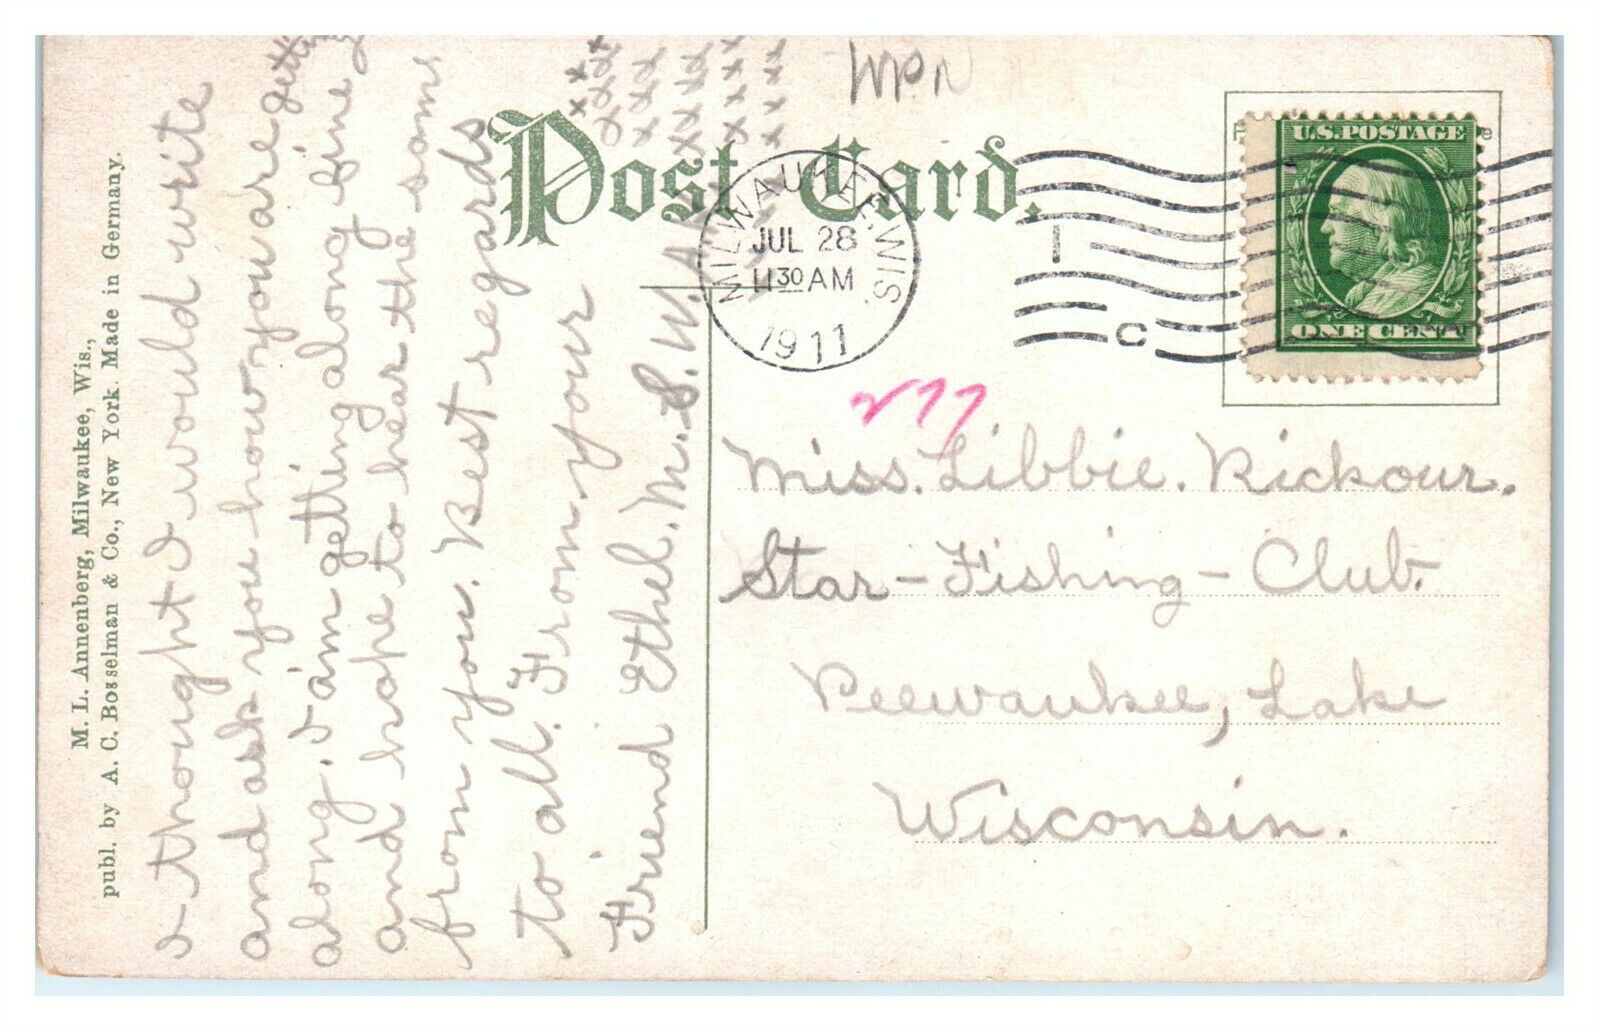 Post Card.
MILWAUKEE, WIS.
JUL 28
11 30 AM
1911
1
C
U.S. POSTAGE
ONE CENT
Miss. Libbie. Rickour.
Star-Fishing-Club.
Peewaukee, Lake
Wisconsin.
I thought I would write
and ask you how you are getting
along. I am getting along fine
and hope to hear the same
from you. Best regards
to all. From your
Friend Ethel. M. S. W.
xxxxx
M. L. Annenberg, Milwaukee, Wis.,
publ. by A. C. Bosselman & Co., New York. Made in Germany.